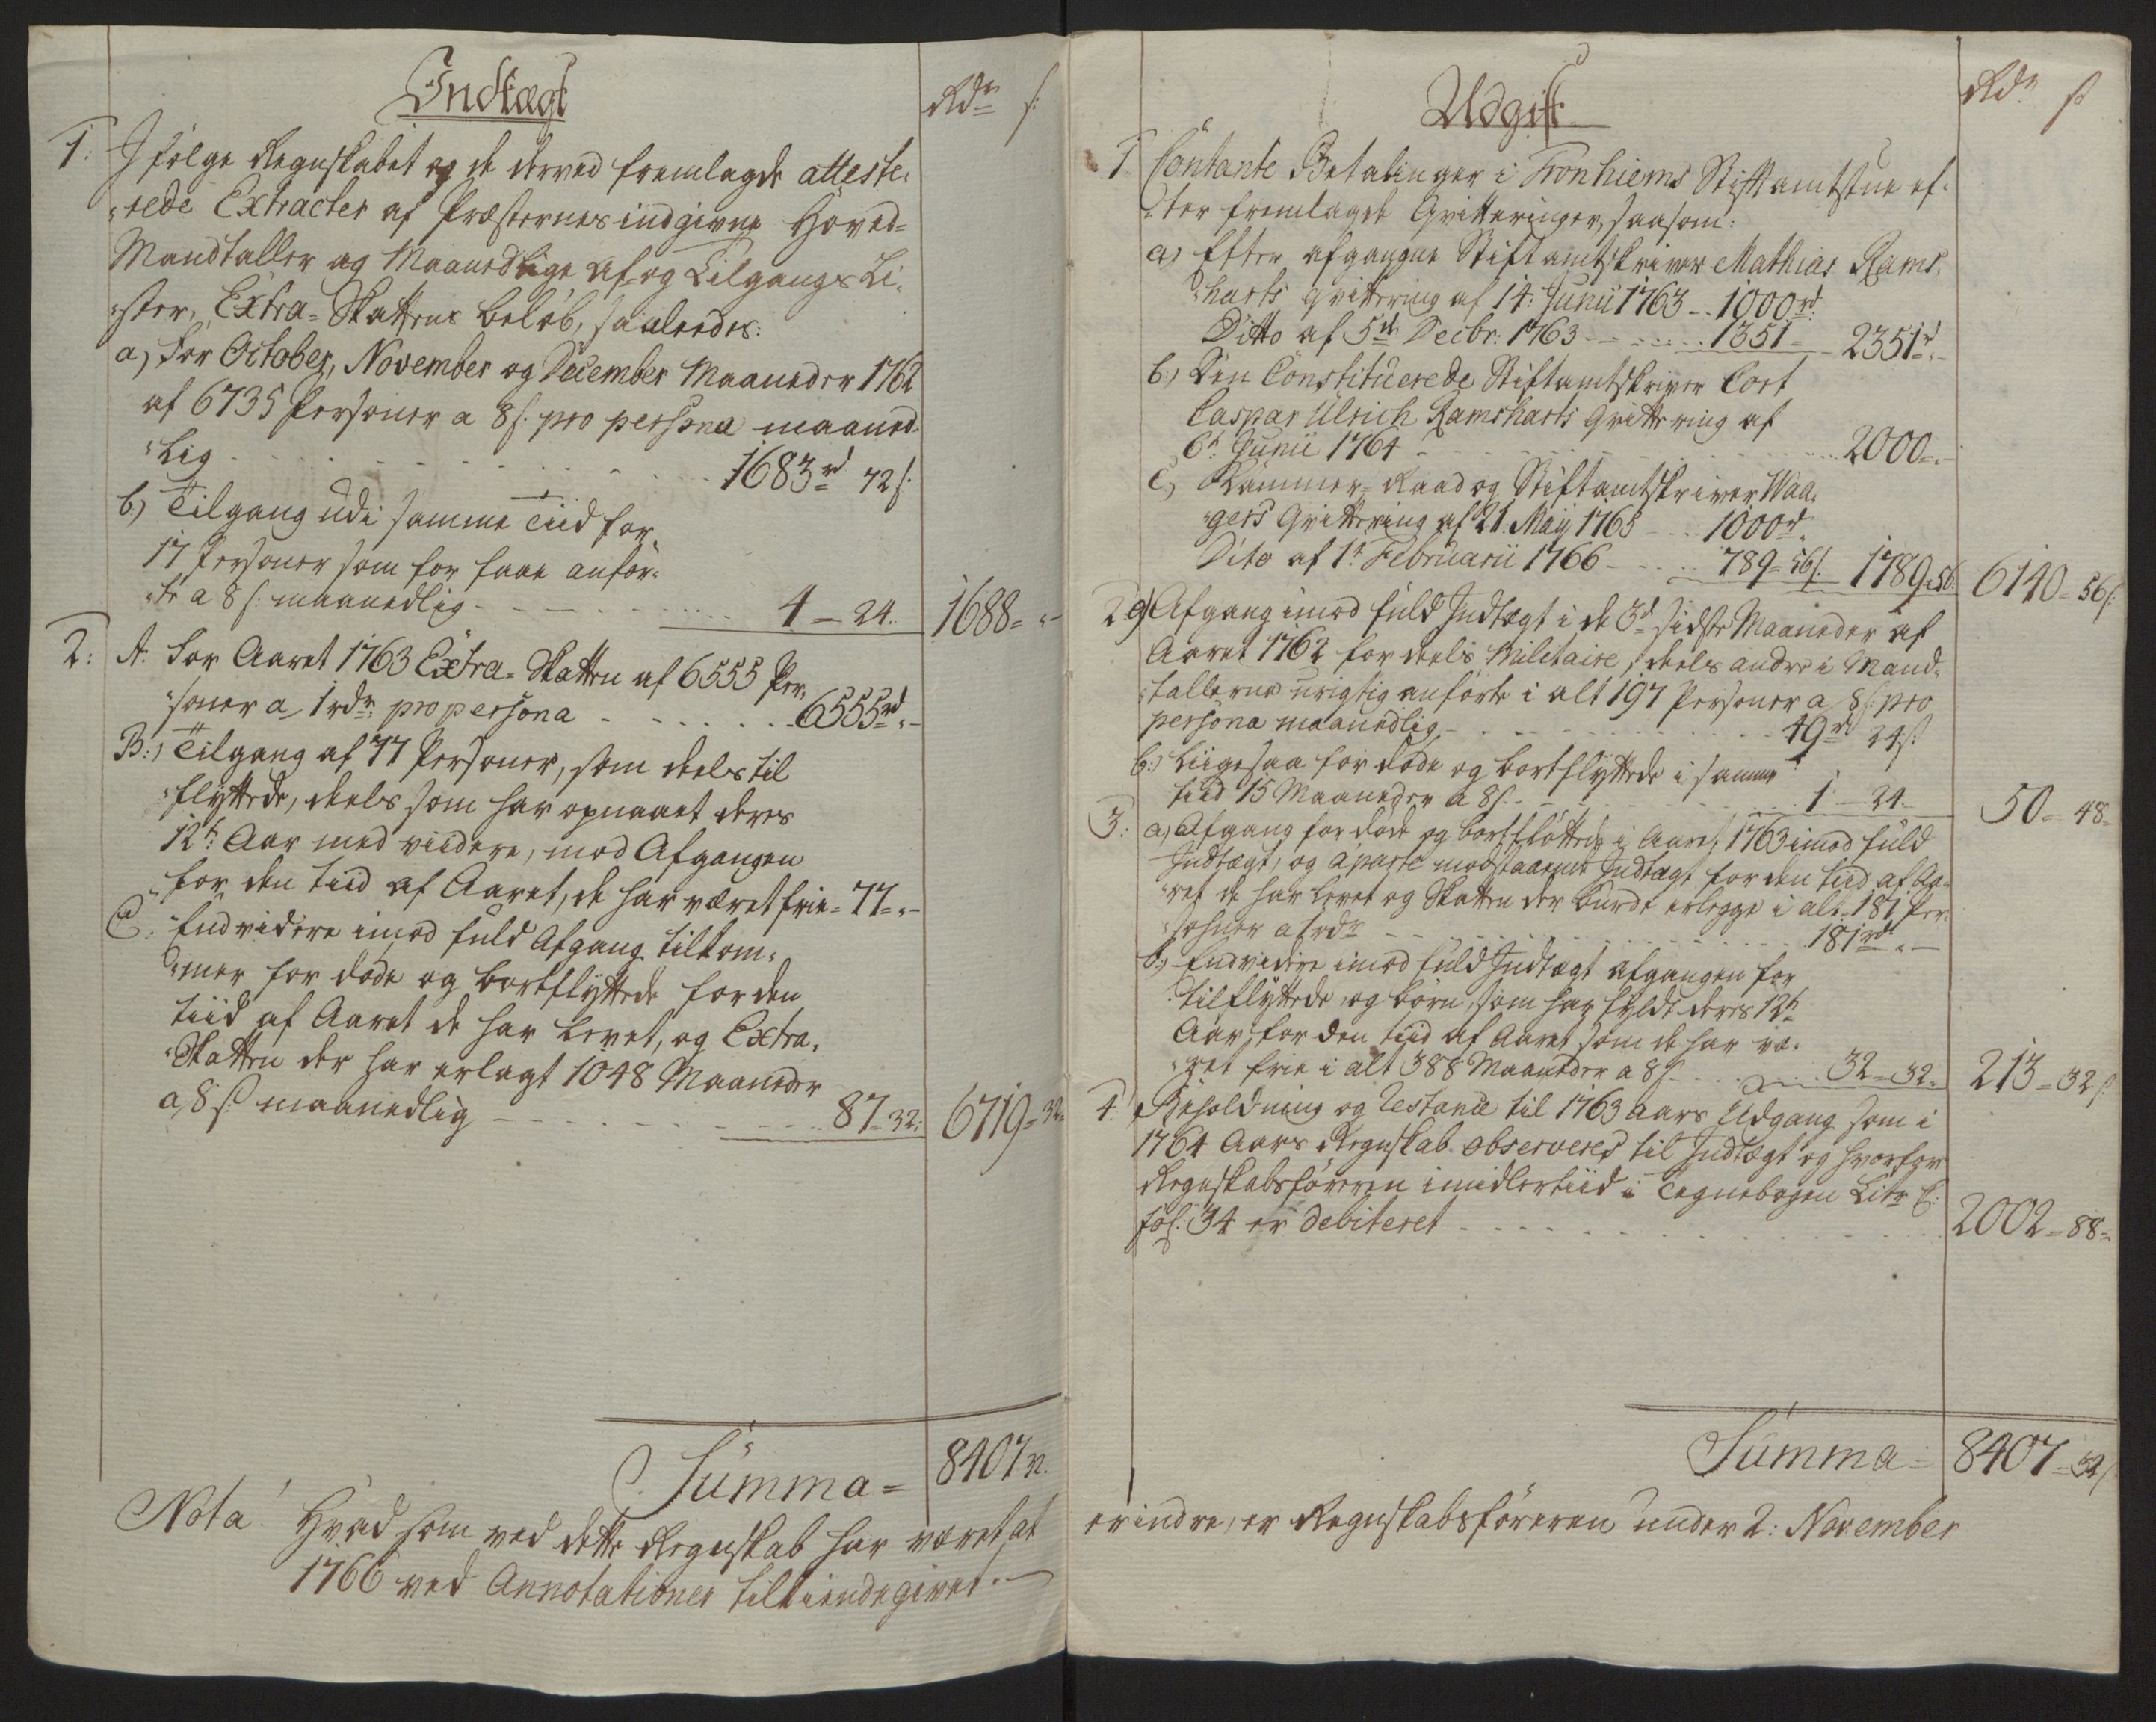 Indtægt
Rdr s:
1: I følge Regnskabet og de derved fremlagde atteste¬
"rede Extracter af Præsternes indgivne Hoved=
Mandtaller og Maanedlige af- og Tilgangs Li¬
"ster, Extra-Skattens beløb, saaledes:
a) For October, November og December Maaneder 1762
af 6735 Personer a 8 s. pro persona maaned¬
"lig - - - - - 1683rd 72 s.
b) Tilgang udi samme Tiid for
17 Personer som for faae anfør¬
"te a 8 s: maanedlig - - - - 4 - 24. 1688 = " -
2: A: For Aaret 1763 Extra-Skatten af 6555 Per¬
"soner a 1 rdr: pro persona - - - - 6555rd " -
B:) Tilgang af 77 Personer, som deels til
"flyttede, deels som har opnaaet deres
12te Aar med viidere, mod Afgangen
for den tiid af Aaret, de har været frie = 77 = " -
C: Endvidere imod fuld Afgang tilkom¬
"mer for døde og bortflyttede for den
tiid af Aaret de har levet, og Extra¬
"Skatten der har erlagt 1048 Maaneder
a 8 s: maanedlig - - - - 87 = 32: 6719 = 32 =
Summa = 8407 32.
Nota! Hvad som ved dette Regnskab har været at
1766 ved Annotationer tilkiendegivet. -
Udgift
Rdr s
1 Contante Betalinger i Tronhiems Stiftamtstue ef¬
"ter fremlagde Qvitteringer, saasom:
a) Efter afgangne Stiftamtskriver Mathias Rams¬
"harts qvittering af 14: Junii 1763 - - 1000rd
Ditto af 5te Decbr: 1763 - - - - 1351 = 2351rd " -
b:) Den Constituerede Stiftamtskriver Cort
Caspar Ulrich Ramsharts Qvittering af
6t Junii 1764 - - - - 2000 = " -
c) Kammer-Raad og Stiftamtskriver Waa¬
"gers Qvittering af 21. Maij 1765 - - 1000rd "
Dito af 1t Februarii 1766 - - - 789 = 56 s. 1789 = 56. 6140 = 56 s:
2 a) Afgang imod fuld Indtægt i de 3de sidste Maaneder af
Aaret 1762 for deels Militaire, deels andre i Mand¬
"tallerne urigtig anførte i alt 197 Personer a 8 s: pro
persona maanedlig - - - - 49rd 24 s
b:) Liigesaa for døde og bortflyttede i samme
tiid 15 Maaneder a 8 s. - - - - 1 - 24 - 50 = 48 =
3: a) Afgang for døde og bortfløttede i Aaret 1763 imod fuld
Indtægt, og aparte modstaaende Indtægt for den tiid af Aa¬
"ret de har levet og Skatten der burde erlegge i alt 181 Per¬
"sohner a 1 rdr - - - - 181rd " -
b) Endvidere imod fuld Indtægt afgangen for
tilflyttede, og børn, som har fyldt deres 12te
Aar, for den tiid af Aaret som de har væ¬
"ret frie i alt 388 Maaneder a 8 s - - - 32 = 32 = 213 = 32 s
4. Beholdning og Restance til 1763 Aars Udgang som i
1764 Aars Regnskab observeres til Indtægt og hvorfor
Regnskabsføreren imidlertiid i Tegnebogen Litr C:
fol: 34 er debiteret - - - - 2002 = 88 =
Summa = 8407 = 32 s
erindre, er Regnskabsføreren under 2: November